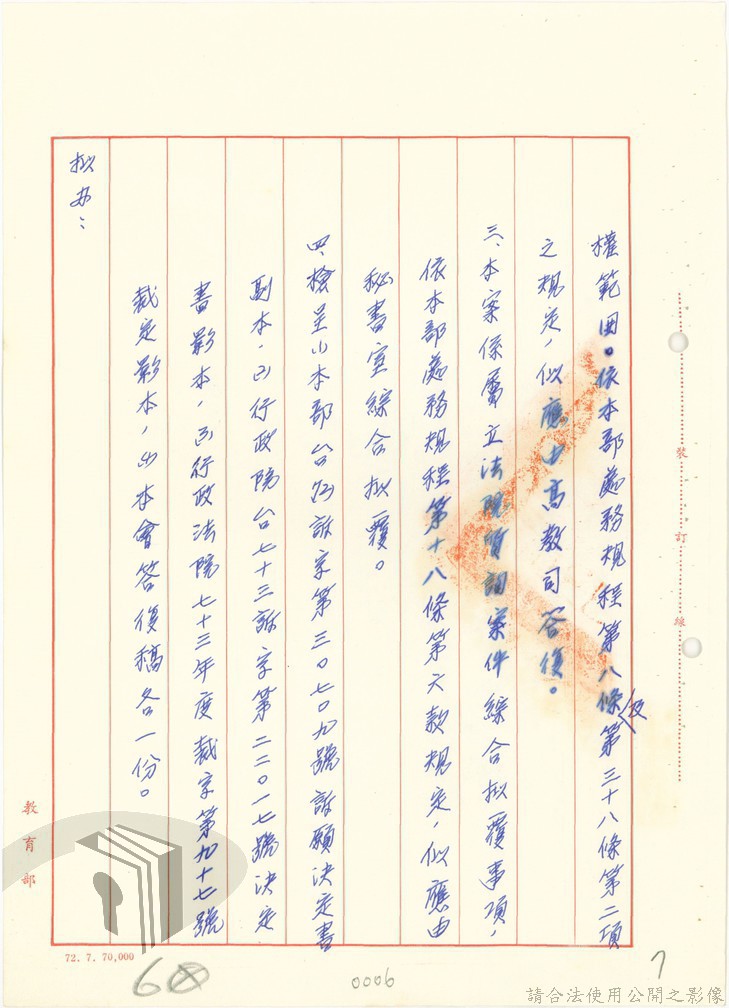 權範圍。依本部處務規程第八條及第三十八條第二項
之規定,似應由高教司答復。
三、本案係屬立法院質詢案件綜合拟覆事項,
依本部處務規程第十八條第六款規定,似應由
秘書室綜合拟覆。
四、檢呈(1)本部台(73)訴字第三〇七〇九號訴願決定書
副本,(2)行政院台七十三訴字第二二〇一七號決定
書影本,(3)行政法院七十三年度裁字第九十七號
裁定影本,(4)本會答復稿各一份。
拟办:
裝
訂
線
教育部
72. 7. 70,000
6
0006
7
請合法使用公開之影像